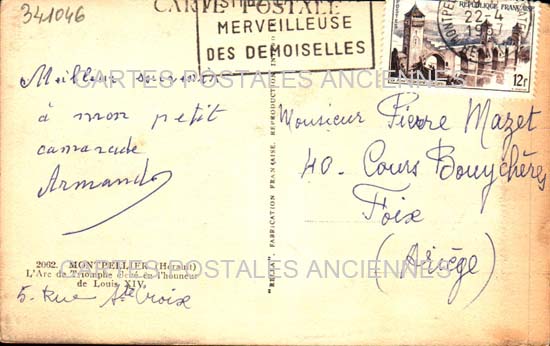 341046
CARTE POSTALE
MERVEILLEUSE
DES DEMOISELLES
22-4
1957
REPUBLIQUE FRANÇAISE
12F
CARTES POSTALES ANCIENNES
Meilleur souvenir
à mon petit
camarade
Armand
Monsieur Pierre Mazet
40. Cours Bouychères
Foix
(Ariège)
"RELLA", FABRICATION FRANÇAISE. REPRODUCTION
2062. MONTPELLIER (Hérault)
L'Arc de Triomphe élevé en l'honneur
de Louis XIV.
CARTES POSTALES ANCIENNES
5. Rue Ste Croix